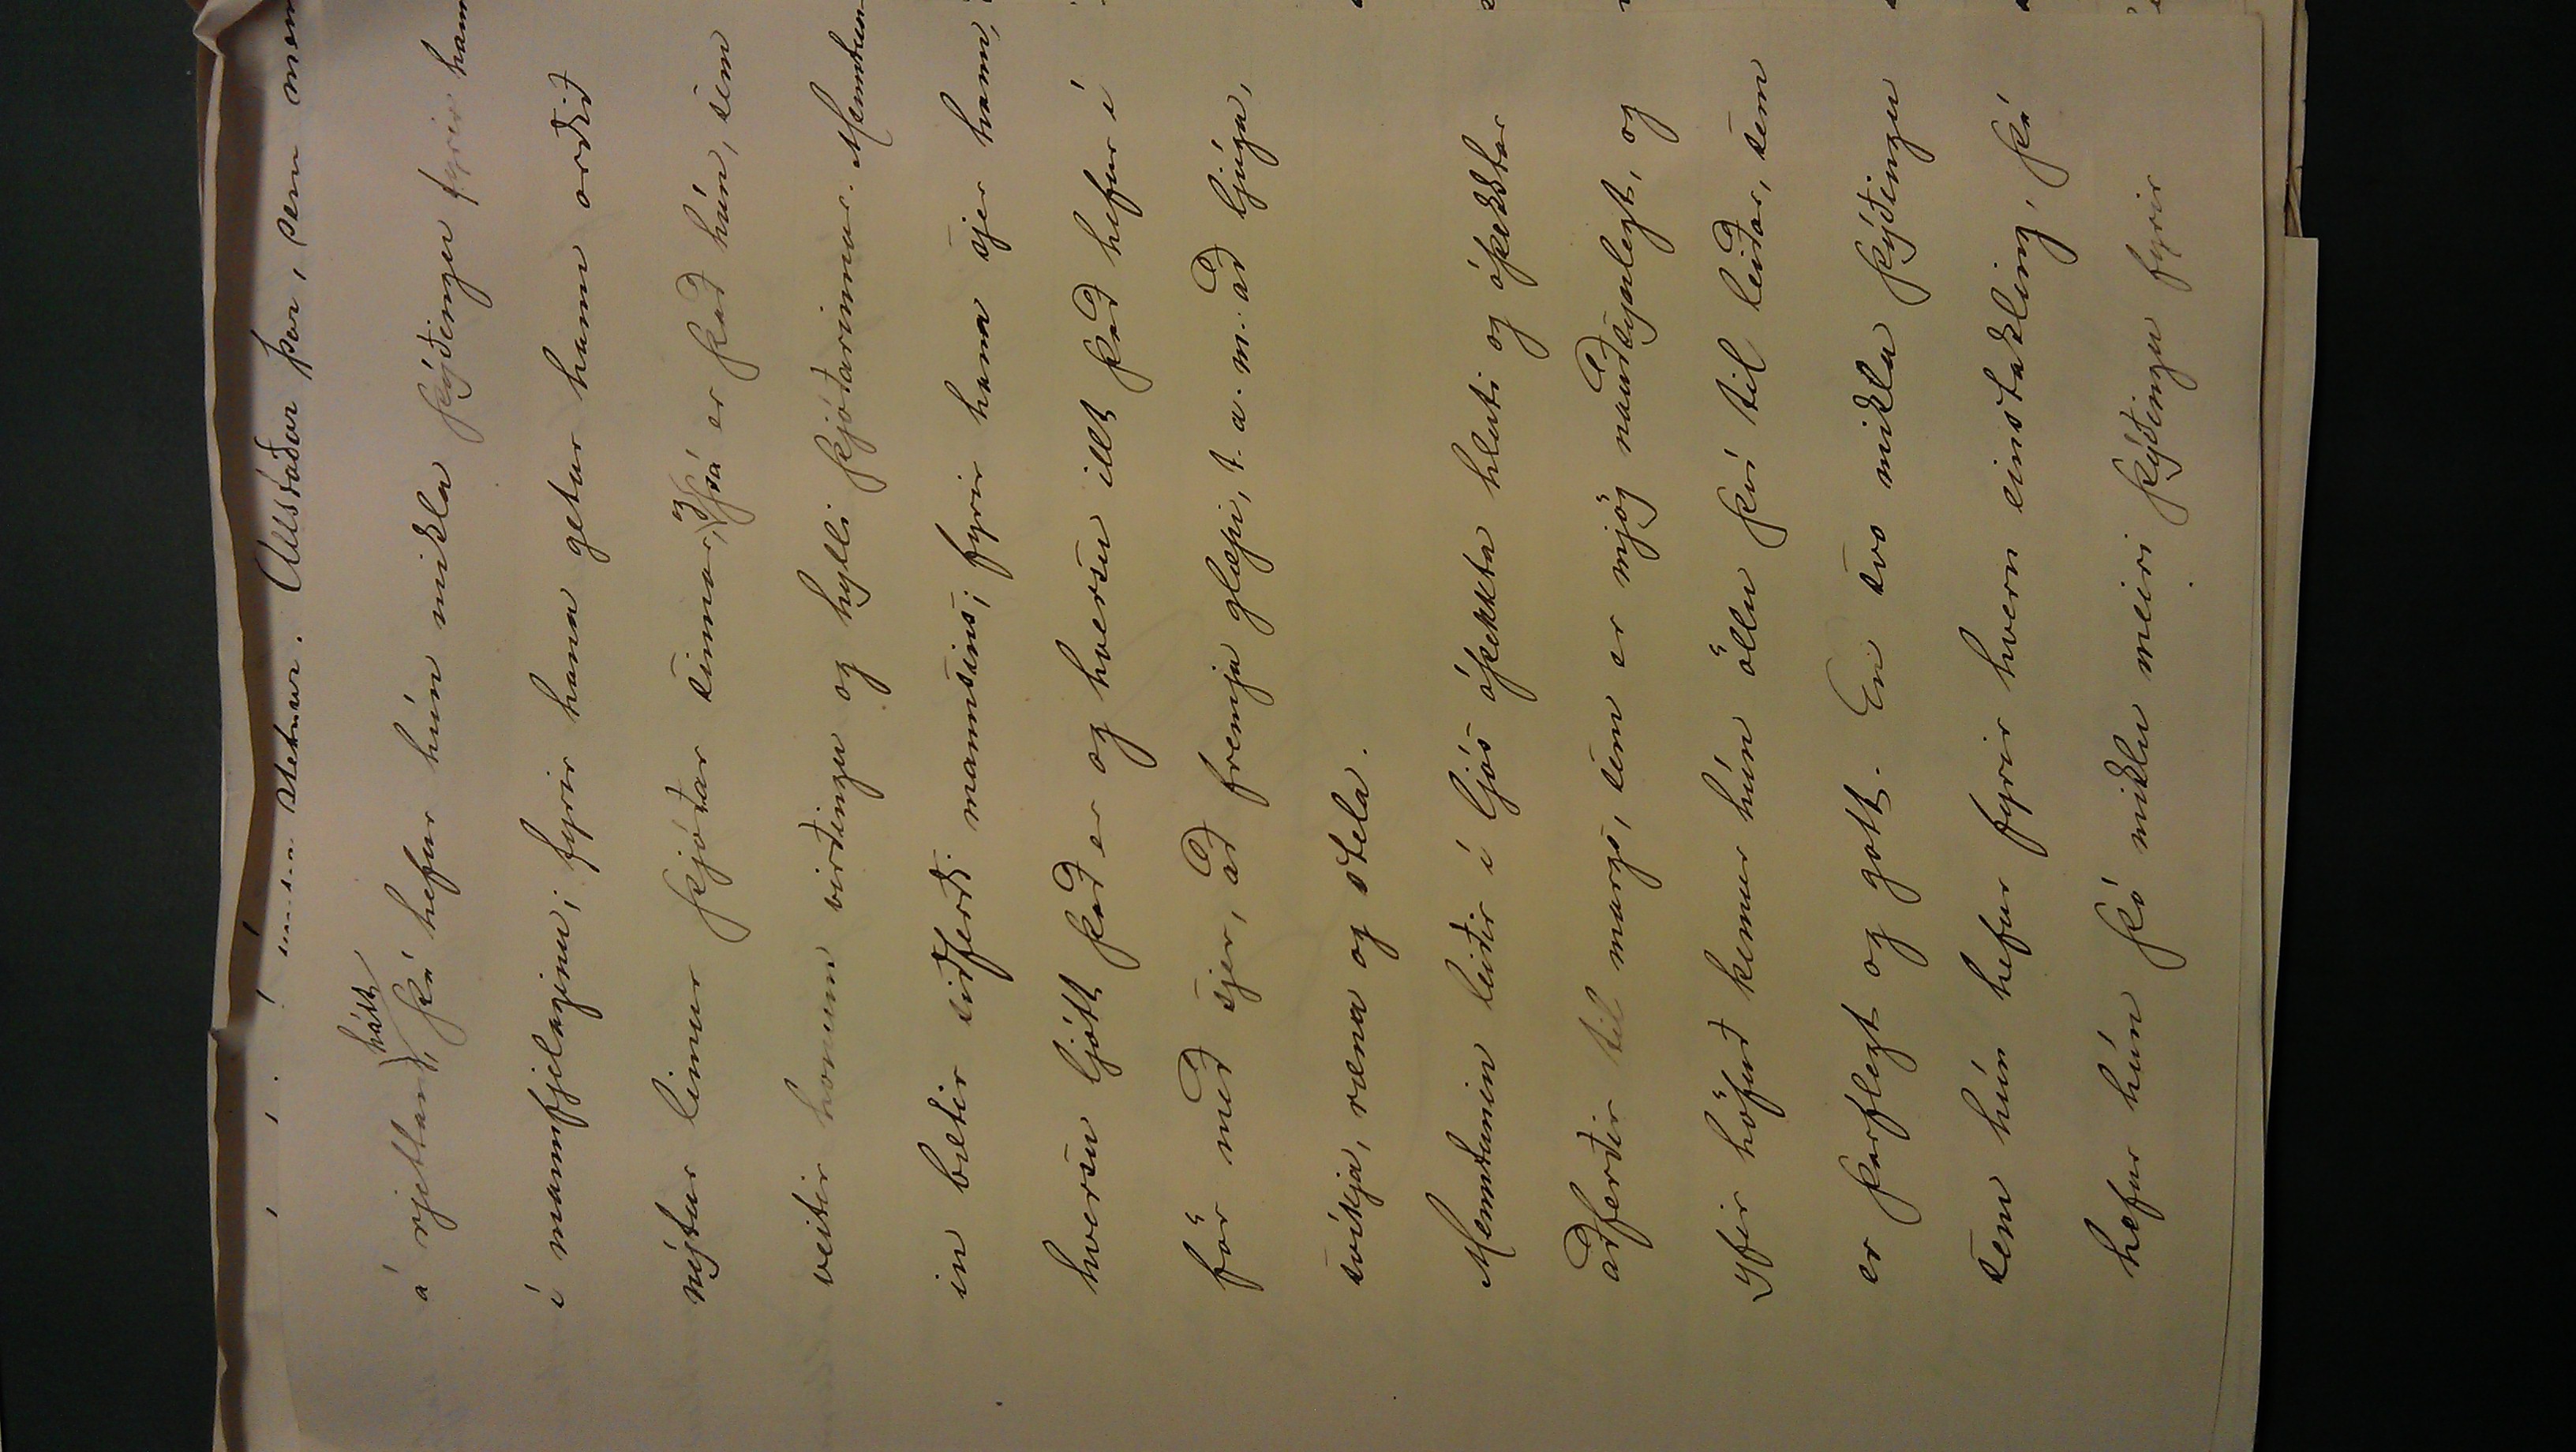 setur. Allstaðar þar, sem men
á rjettan hátt, þá hefur hún mikla þýðingu fyrir hann
í mannfjelaginu; fyrir hana getur hann orðið
nýtur limur þjóðar sinnar, og svá er það hún, sem
veitir honum virðingu og hylli þjóðarinnar. Menntun-
in bætir siðferði mannsins; fyrir hana sjer hann,
hversu ljótt það er og hversu illt það hefur í
för með sjer, að fremja glæpi, t.a.m. að ljúga,
svíkja, ræna og stela.
Menntunin leiðir í ljós óþekkta hluti og óþekktar
aðferðir til margs, sem er mjög nauðsynlegt, og
yfir höfuð kemur hún öllu því til leiðar, sem
er þarflegt og gott. En svo mikla þýðingu
sem hún hefur fyrir hvern einstakling, þá
hefur hún þó miklu meiri þýðingu fyrir